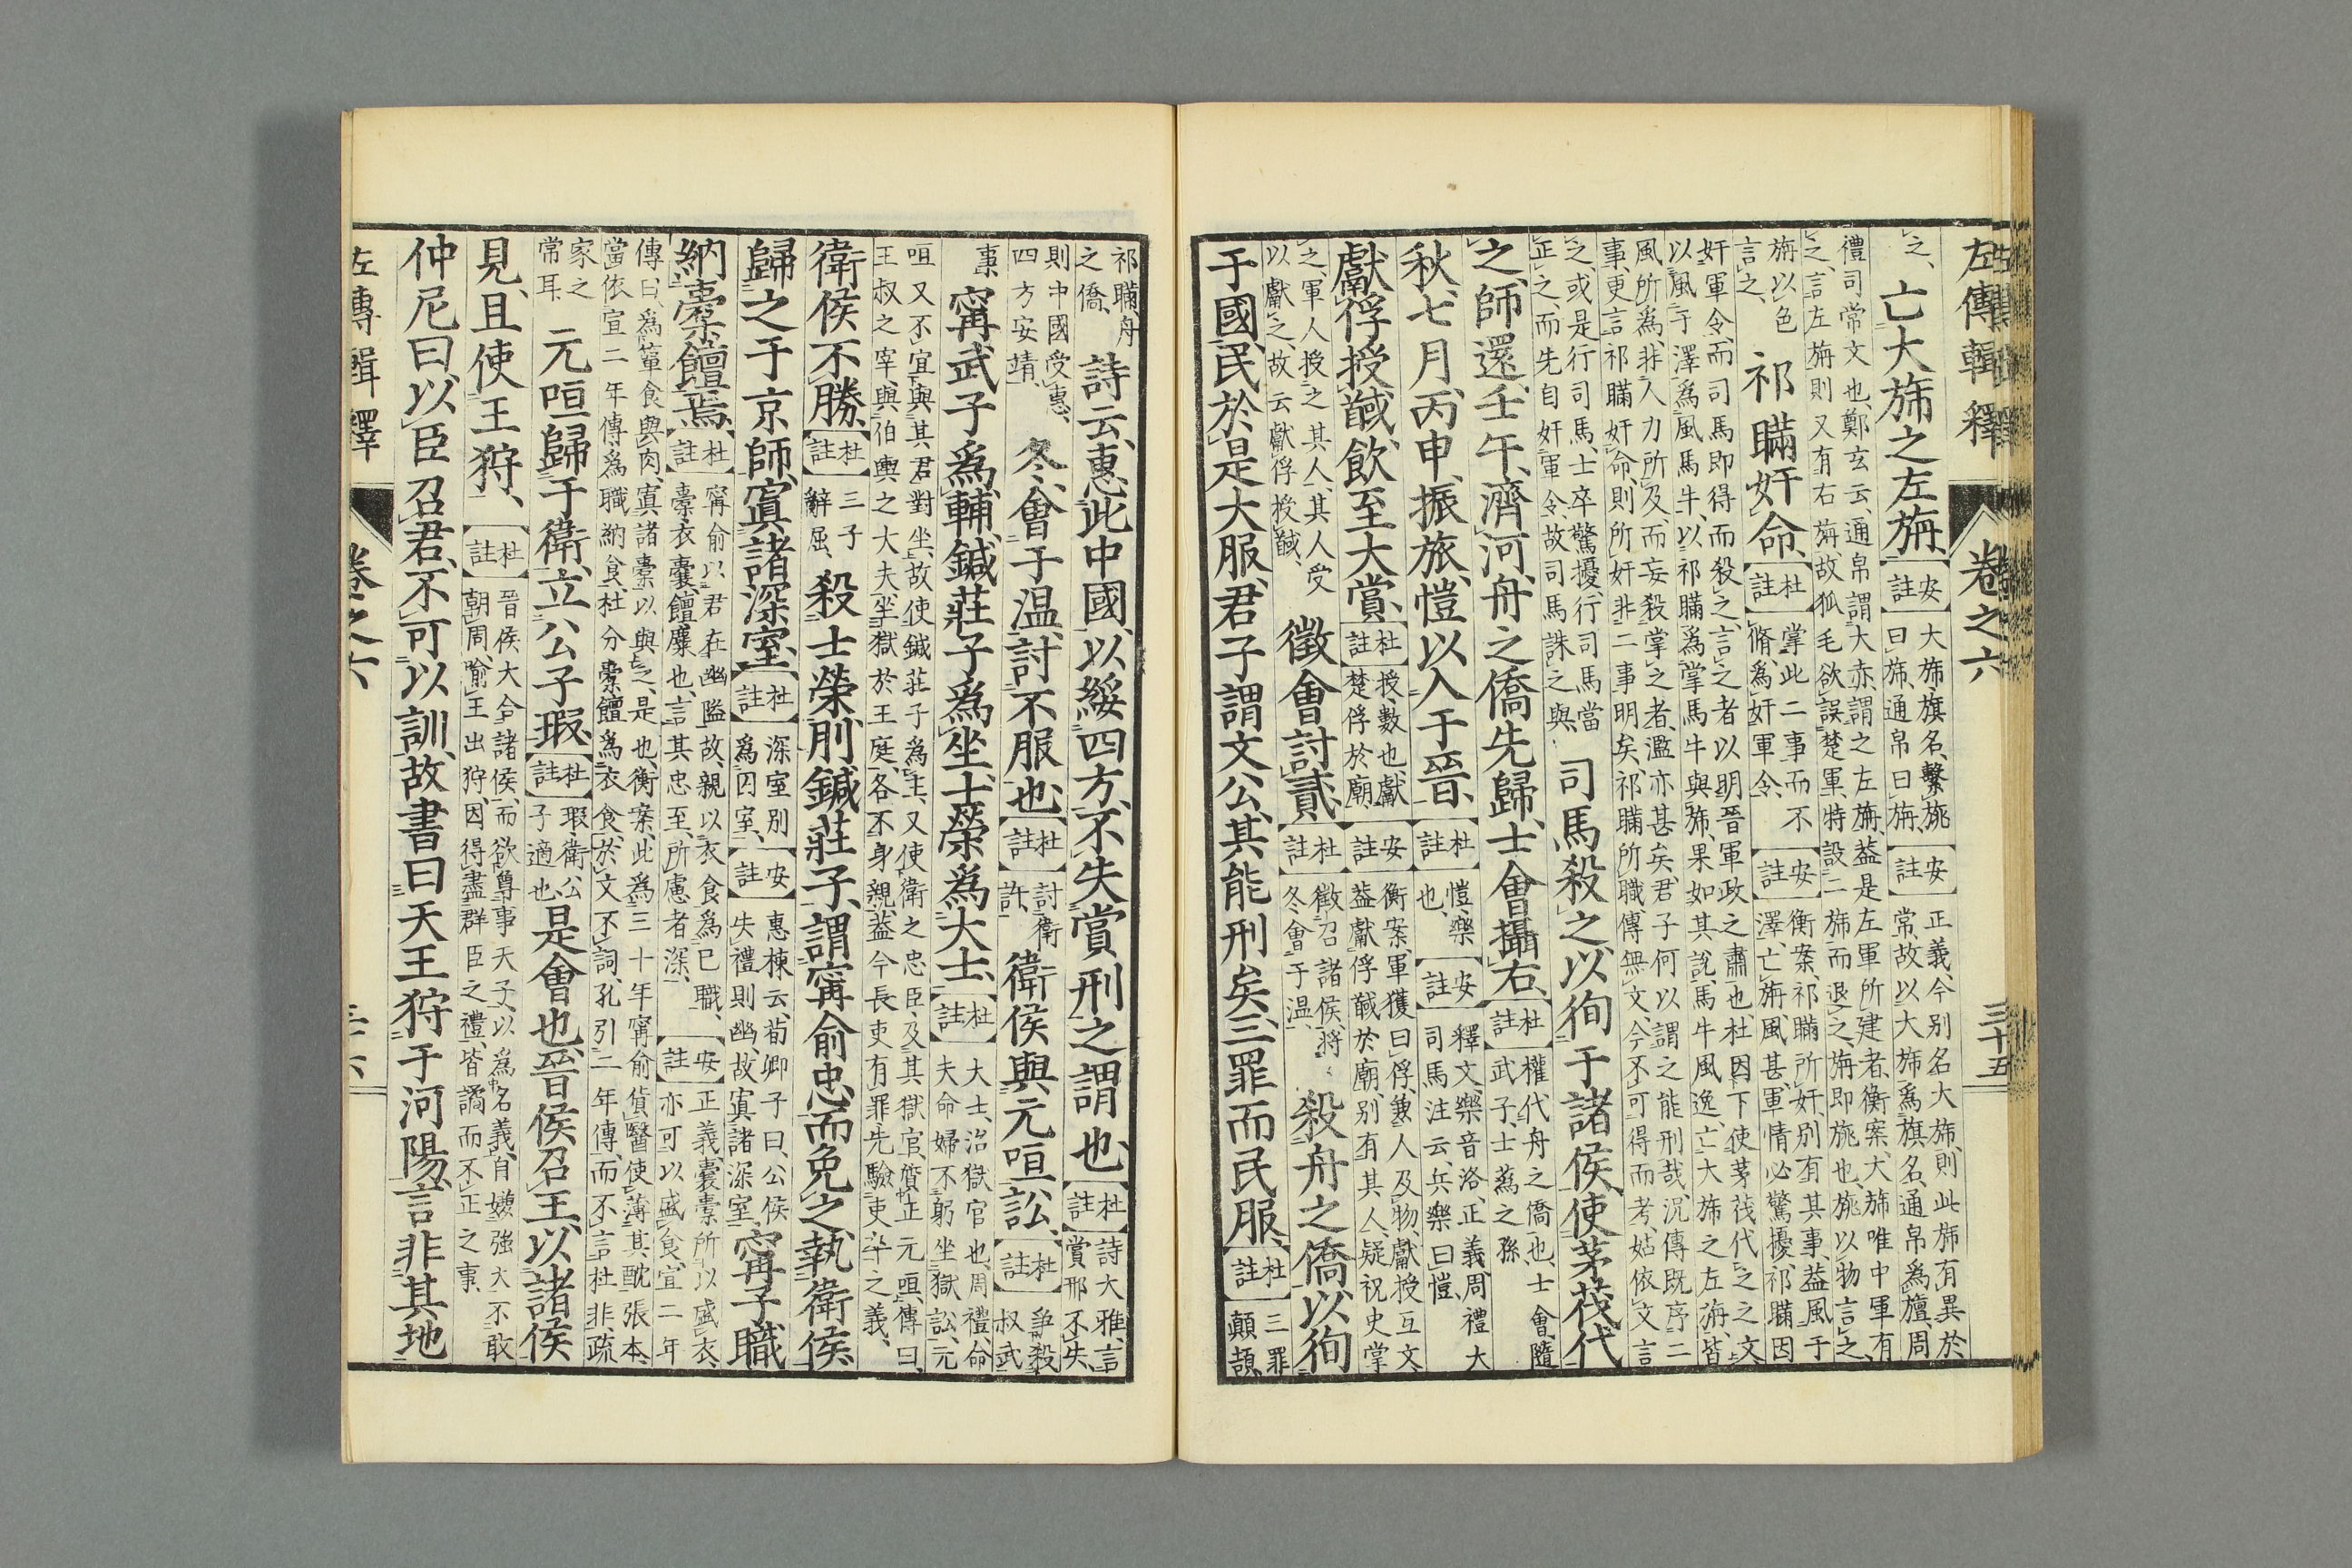 左傳輯釋 卷之六 三十五
之、亡大旆之左旃、安註大旆、旗名、繫旐
曰旆、通帛曰旃、安註正義、今別名大旆、則此旆有異於
常、故以大旆爲旗名、通帛爲旜、周
禮司常文也、鄭玄云、通帛謂大赤、謂之左旃、蓋是左軍所建者、衡案、大旆唯中軍有
之、言左旃則又有右旃、故狐毛欲誤楚軍、特設二旆而退之、旃即旐也、旐以物言之、
旃以色
言之、祁瞞奸命、杜註掌此二事而不
脩、爲奸軍令、安註衡案、祁瞞所奸、別有其事、蓋風于
澤、亡旃、風甚、軍情必驚擾、祁瞞因
奸軍令、而司馬即得而殺之、言之者以明晉軍政之肅也、杜因下使茅茷代之之文
以風于澤爲風馬牛、以祁瞞爲掌馬牛與旆、果如其説、馬牛風逸、亡大旆之左旃、皆
風所爲、非人力所及、而妄殺掌之者、濫亦甚矣、君子何以謂之能刑哉、況傳既序二
事、更言祁瞞奸命、則所奸非二事明矣、祁瞞所職、傳無文、今不可得而考、姑依文言
之、或是行司馬、士卒驚擾、行司馬當
正之、而先自奸軍令、故司馬誅之與、司馬殺之、以徇于諸侯、使茅茷代
之、師還、壬午、濟河、舟之僑先歸、士會攝右、杜註權代舟之僑也、士會、隨
武子士蔿之孫
秋、七月、丙申、振旅、愷以入于晉、杜註愷、樂
也、安註釋文、樂音洛、正義、周禮大
司馬注云、兵樂曰愷、
獻俘授馘、飲至大賞、杜註授、數也、獻
楚俘於廟、安註衡案、軍獲曰俘、兼人及物、獻授互文
蓋獻俘馘於廟、別有其人、疑祝史掌
之、軍人授之其人、其人受
以獻之、故云獻俘授馘、徵會討貳、杜註徵召諸侯、將
冬會于温、殺舟之僑、以徇
于國、民於是大服、君子謂文公、其能刑矣、三罪而民服、杜註三罪
顛頡、
祁瞞、舟
之僑、詩云、惠此中國、以綏四方、不失賞刑之謂也、杜註詩大雅、言
賞刑不失、
則中國受惠、
四方安靖、冬、會于温、討不服也、杜註討衛
許、衛侯與元咺訟、杜註爭殺
叔武
事、甯武子爲輔、鍼莊子爲坐、士榮爲大士、杜註大士、治獄官也、周禮、命
夫命婦不躬坐獄訟、元
咺又不宜與其君對坐、故使鍼莊子爲主、又使衛之忠臣、及其獄官、質正元咺、傳曰、
王叔之宰、與伯輿之大夫、坐獄於王庭、各不身親、蓋今長吏有罪、先驗吏卒之義、
衛侯不勝、杜註三子
辭屈、殺士榮、刖鍼莊子、謂甯俞忠而免之、執衛侯、
歸之于京師、寘諸深室、杜註深室別
爲囚室、安註惠棟云、荀卿子曰、公侯
失禮則幽、故寘諸深室、甯子職
納橐饘焉、杜註甯俞以君在幽隘故、親以衣食爲己職、
橐衣囊饘糜也、言其忠至、所慮者深、安註正義、囊橐所以盛衣、
亦可以盛食、宣二年
傳曰、爲簞食與肉、寘諸橐以與之、是也、衡案、此爲三十年甯俞貨醫使薄其酖張本、
當依宣二年傳爲職納食、杜分橐饘爲衣食、於文不詞、孔引二年傳、而不言杜非、疏
家之
常耳、元咺歸于衛、立公子瑕、杜註瑕、衛公
子適也、是會也、晉侯召王、以諸侯
見、且使王狩、杜註晉侯大合諸侯、而欲尊事天子、以爲名義、自嫌強大、不敢
朝周、喻王出狩、因得盡群臣之禮、皆譎而不正之事、
仲尼曰、以臣召君、不可以訓、故書曰天王狩于河陽、言非其地
左傳輯釋 卷之六 三十六